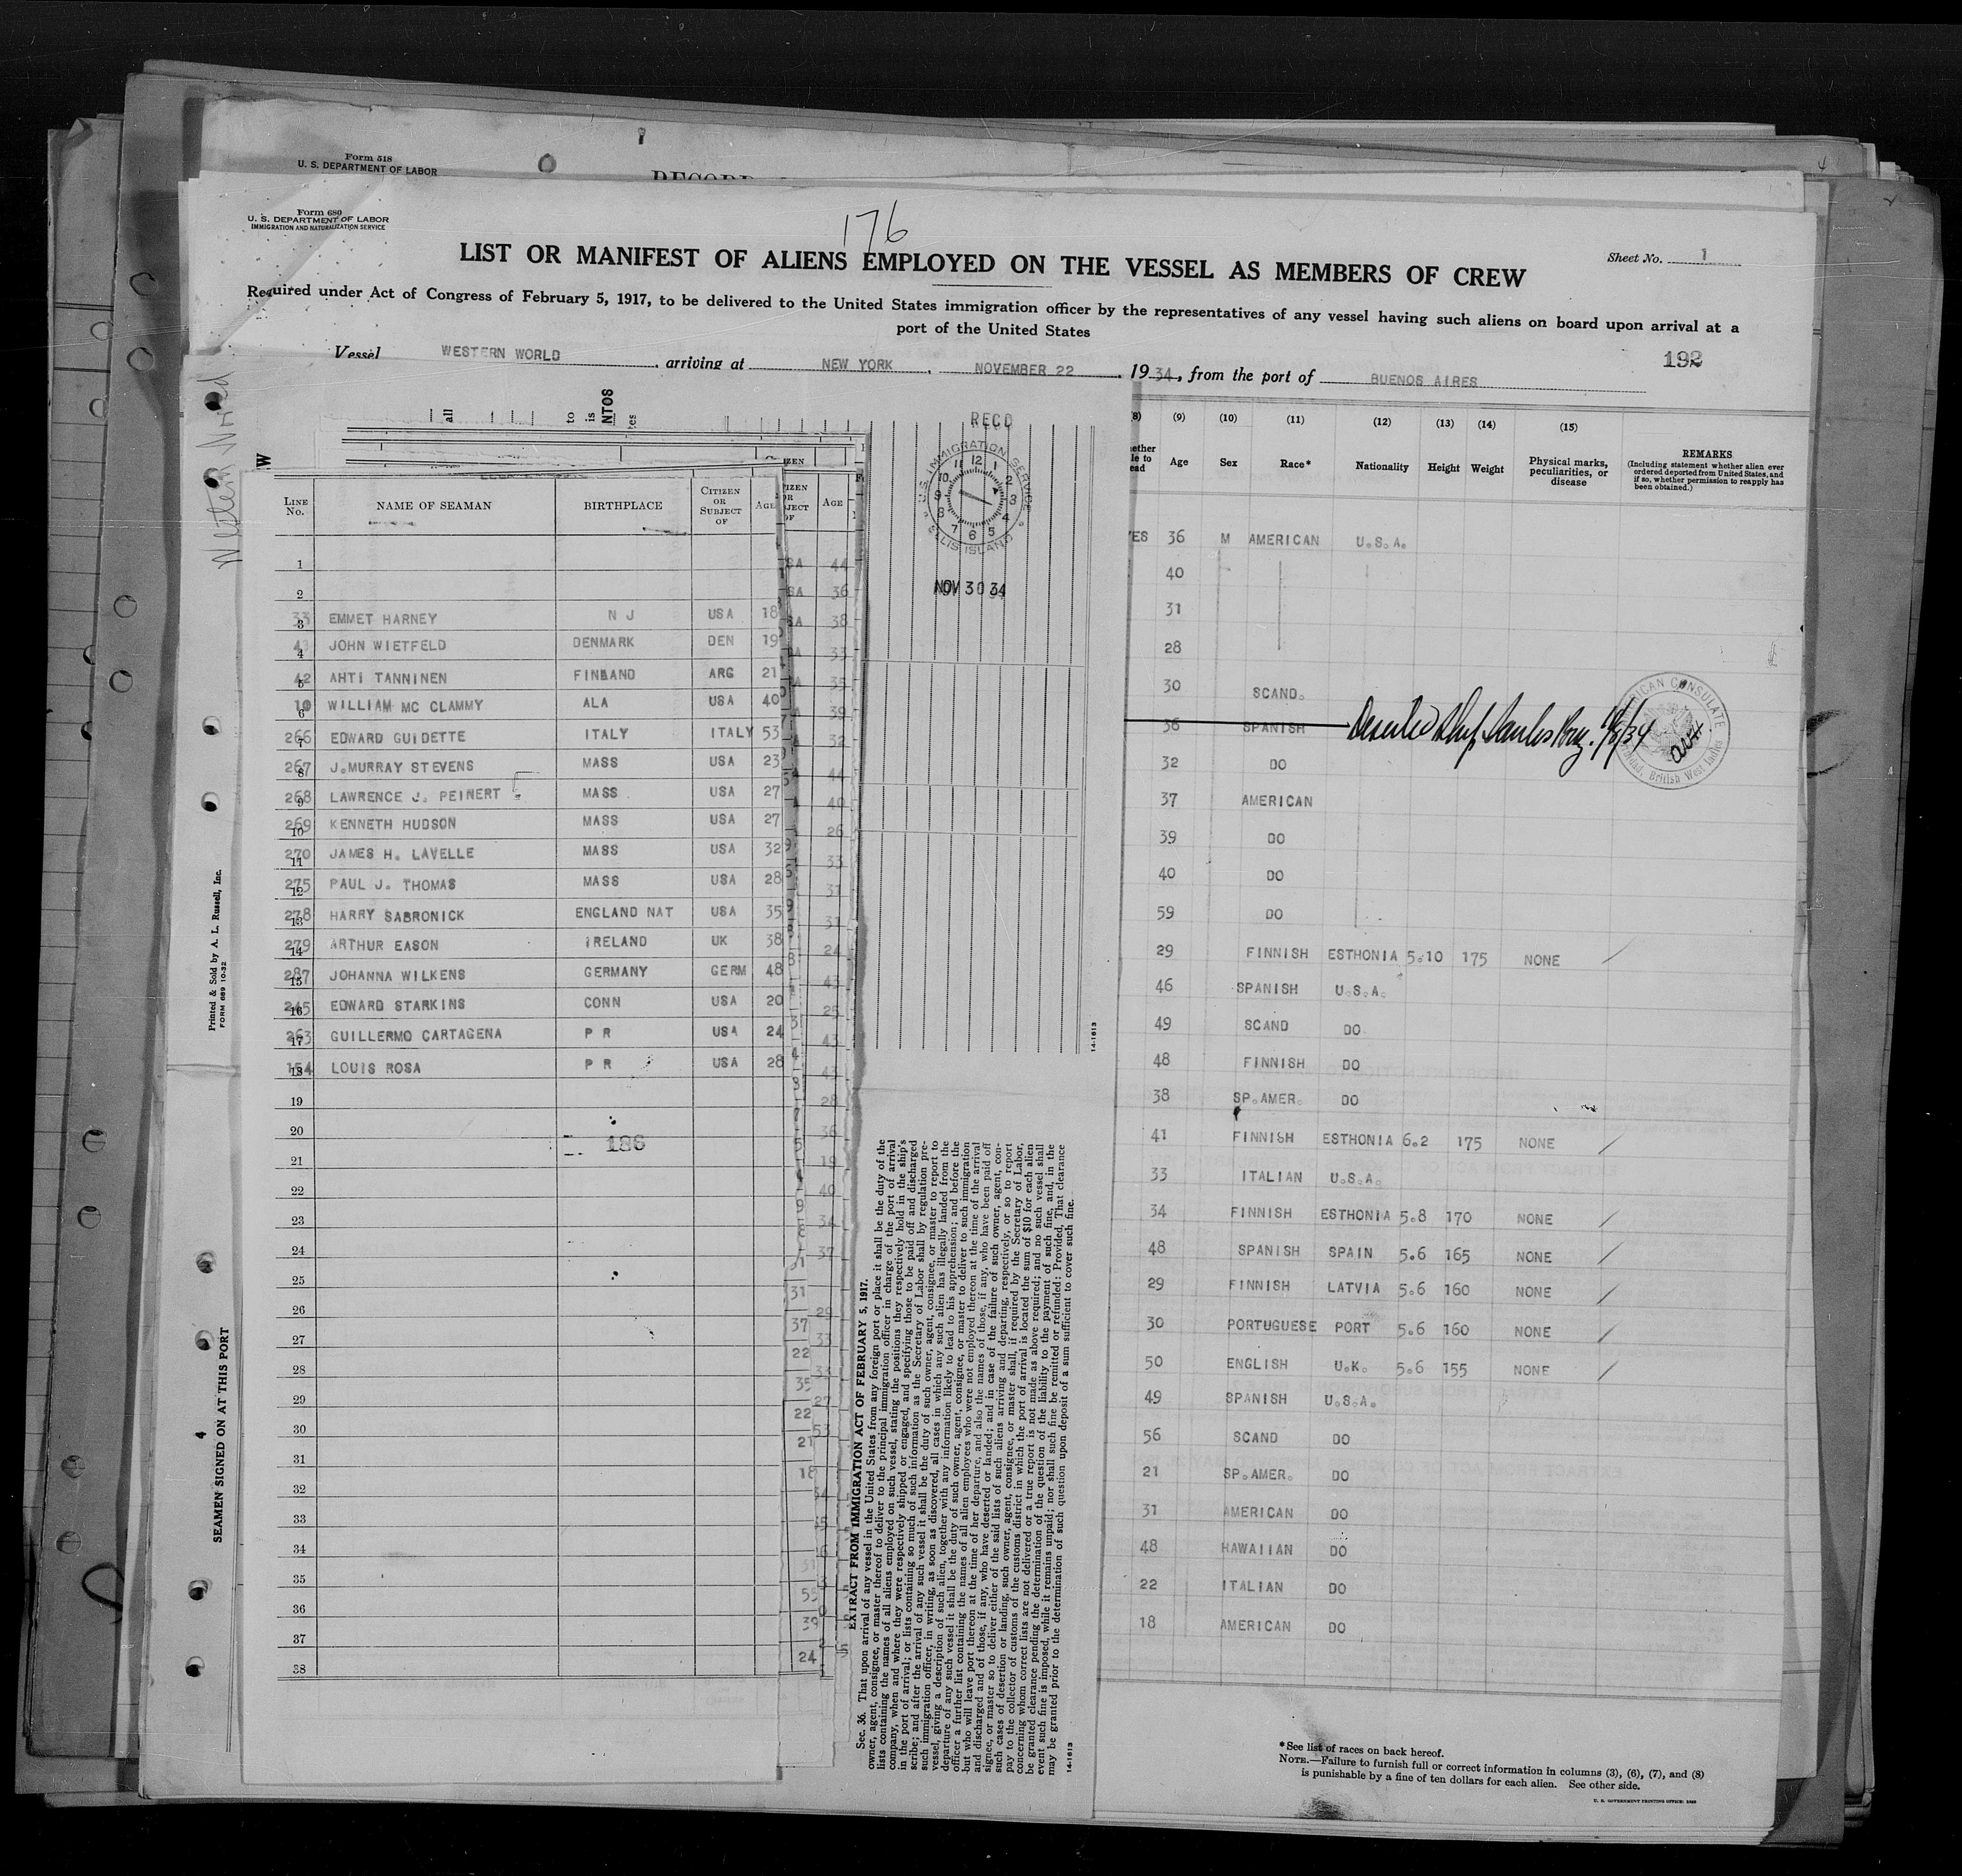 Form 518
U. S. DEPARTMENT OF LABOR
Form 680
U. S. DEPARTMENT OF LABOR
IMMIGRATION AND NATURALIZATION SERVICE
176
LIST OR MANIFEST OF ALIENS EMPLOYED ON THE VESSEL AS MEMBERS OF CREW
Sheet No. 1
Required under Act of Congress of February 5, 1917, to be delivered to the United States immigration officer by the representatives of any vessel having such aliens on board upon arrival at a
port of the United States
Vessel WESTERN WORLD, arriving at NEW YORK, NOVEMBER 22, 1934, from the port of BUENOS AIRES
192
Western World
RECD
U.S. IMMIGRATION SERVICE
ELLIS ISLAND
NOV 30 34
LINE No. NAME OF SEAMAN BIRTHPLACE CITIZEN OR SUBJECT OF AGE
1
2
33 3 EMMET HARNEY N J USA 18
4 JOHN WIETFELD DENMARK DEN 19
42 5 AHTI TANNINEN FINLAND ARG 21
10 6 WILLIAM MC CLAMMY ALA USA 40
266 7 EDWARD GUIDETTE ITALY ITALY 53
267 8 J.MURRAY STEVENS MASS USA 23
268 9 LAWRENCE J. PEINERT MASS USA 27
269 10 KENNETH HUDSON MASS USA 27
270 11 JAMES H. LAVELLE MASS USA 32
275 12 PAUL J. THOMAS MASS USA 28
278 13 HARRY SABRONICK ENGLAND NAT USA 35
279 14 ARTHUR EASON IRELAND UK 38
287 15 JOHANNA WILKENS GERMANY GERM 48
16 EDWARD STARKINS CONN USA 20
263 17 GUILLERMO CARTAGENA P R USA 24
18 LOUIS ROSA P R USA 28
19
20
186
21
22
23
24
25
26
27
28
29
30
31
32
33
34
35
36
37
38
Printed & Sold by A. L. Russell, Inc.
FORM 689 10-32
4
SEAMEN SIGNED ON AT THIS PORT
14-1613
EXTRACT FROM IMMIGRATION ACT OF FEBRUARY 5, 1917.
Sec. 36. That upon arrival of any vessel in the United States from any foreign port or place it shall be the duty of the
owner, agent, consignee, or master thereof to deliver to the principal immigration officer in charge of the port of arrival
lists containing the names of all aliens employed on such vessel, stating the positions they respectively hold in the ship's
company, when and where they were respectively shipped or engaged, and specifying those to be paid off and discharged
in the port of arrival; or lists containing so much of such information as the Secretary of Labor shall by regulation pre-
scribe; and after the arrival of any such vessel it shall be the duty of such owner, agent, consignee, or master to report to
such immigration officer, in writing, as soon as discovered, all cases in which any such alien has illegally landed from the
vessel, giving a description of such alien, together with any information likely to lead to his apprehension; and before the
departure of any such vessel it shall be the duty of such owner, agent, consignee, or master to deliver to such immigration
officer a further list containing the names of all alien employees who were not employed thereon at the time of the arrival
but who will leave port thereon at the time of her departure, and also the names of those, if any, who have been paid off
and discharged and of those, if any, who have deserted or landed; and in case of the failure of such owner, agent, con-
signee, or master so to deliver either of the said lists of such aliens arriving and departing, respectively, or so to report
such cases of desertion or landing, such owner, agent, consignee, or master shall, if required by the Secretary of Labor,
pay to the collector of customs of the customs district in which the port of arrival is located the sum of $10 for each alien
concerning whom correct lists are not delivered or a true report is not made as above required; and no such vessel shall
be granted clearance pending the determination of the question of the liability to the payment of such fine, and, in the
event such fine is imposed, while it remains unpaid; nor shall such fine be remitted or refunded: Provided, That clearance
may be granted prior to the determination of such question upon deposit of a sum sufficient to cover such fine.
14-1613
(9) (10) (11) (12) (13) (14) (15)
Age Sex Race* Nationality Height Weight Physical marks, peculiarities, or disease
REMARKS
(Including statement whether alien ever ordered deported from United States, and if so, whether permission to reapply has been obtained.)
36 M AMERICAN U.S.A.
40
31
28
30 SCAND.
36 SPANISH Deserted Ship Santos
AMERICAN CONSULATE
Trinidad, British West Indies
32 DO
37 AMERICAN
39 DO
40 DO
59 DO
29 FINNISH ESTHONIA 5.10 175 NONE
46 SPANISH U.S.A.
49 SCAND DO
48 FINNISH DO
38 SP.AMER. DO
41 FINNISH ESTHONIA 6.2 175 NONE
33 ITALIAN U.S.A.
34 FINNISH ESTHONIA 5.8 170 NONE
48 SPANISH SPAIN 5.6 165 NONE
29 FINNISH LATVIA 5.6 160 NONE
30 PORTUGUESE PORT 5.6 160 NONE
50 ENGLISH U.K. 5.6 155 NONE
49 SPANISH U.S.A.
56 SCAND DO
21 SP.AMER. DO
31 AMERICAN DO
48 HAWAIIAN DO
22 ITALIAN DO
18 AMERICAN DO
*See list of races on back hereof.
NOTE.—Failure to furnish full or correct information in columns (3), (6), (7), and (8)
is punishable by a fine of ten dollars for each alien. See other side.